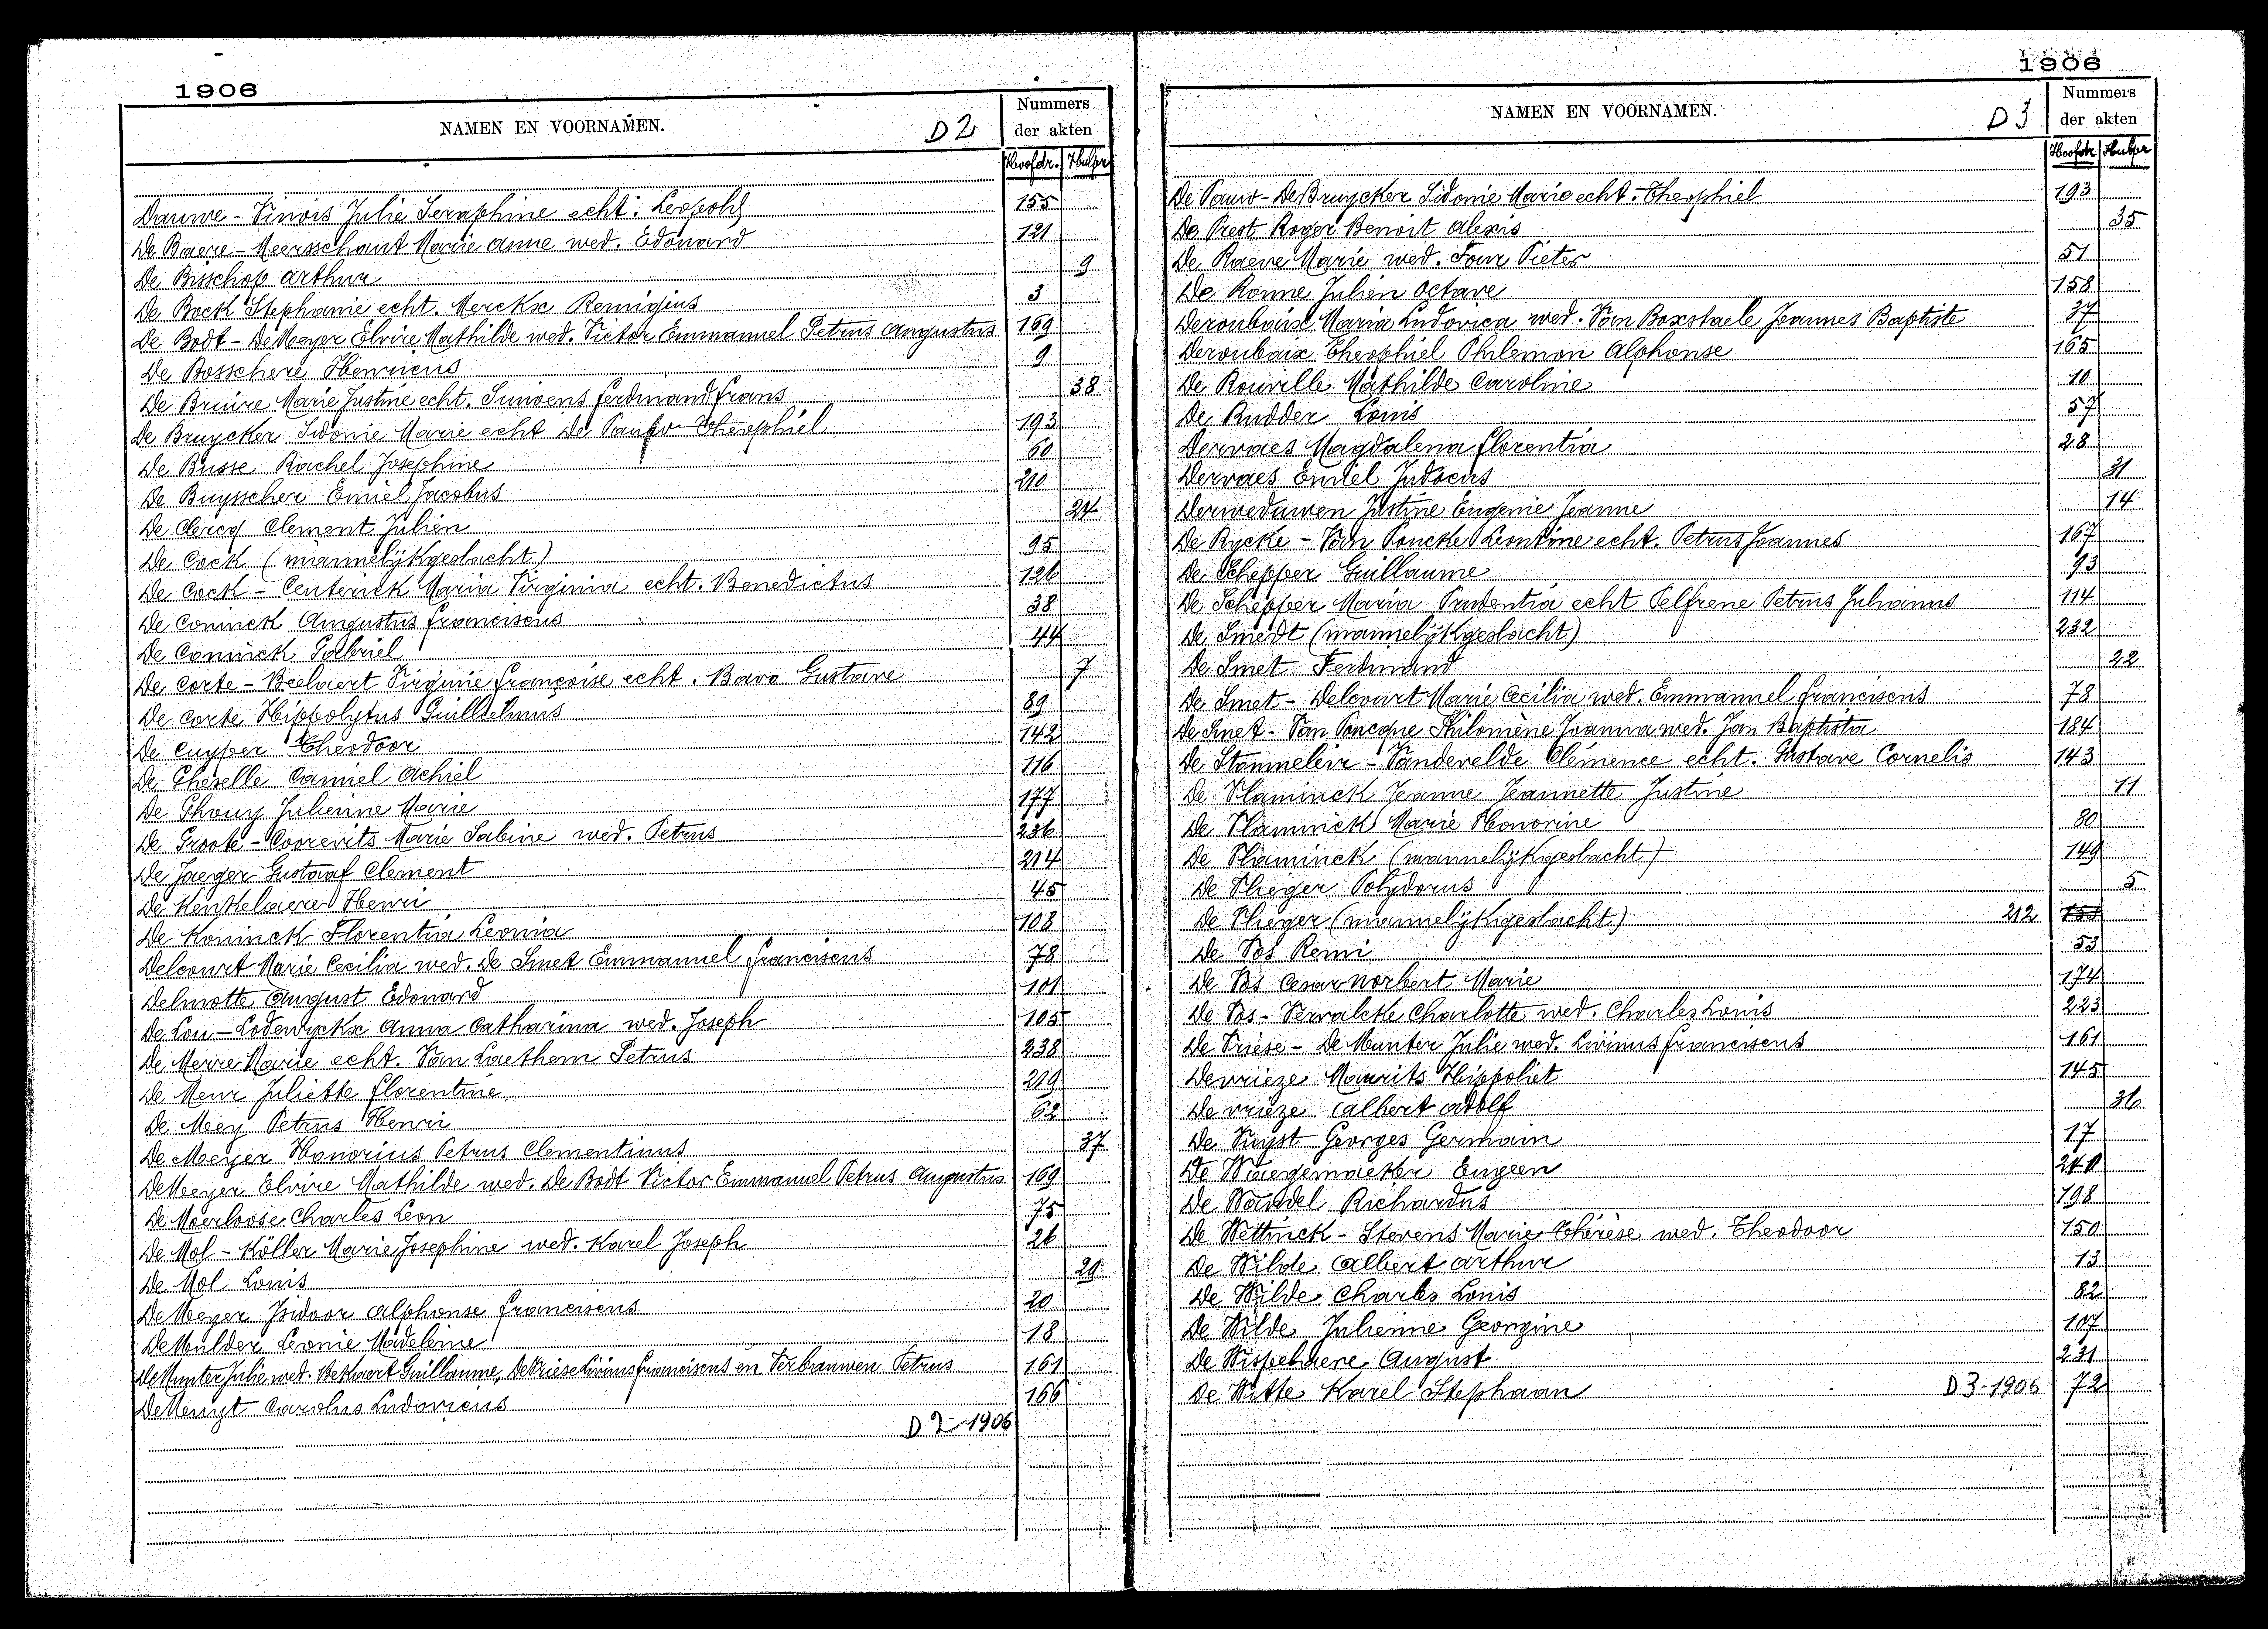 1906
NAMEN EN VOORNAMEN. D 2
Nummers
der akten
Hoofdr. Hulpr
Dauwe - Vinois Julie Seraphine echt. Leopold 155
De Baere - Meersschaut Marie Anne wed. Edouard 121
De Bisschop Arthur 9
De Bock Stephanie echt. Merckx Remigius 3
De Bodt - De Meyer Elvire Mathilde wed. Victor Emmanuel Petrus Augustus 169
De Bosschere Henricus 9
De Bruire Marie Justine echt. Sunoens Ferdinand Frans 38
De Bruycker Sidonie Marie echt De Pauw Theophiel 193
De Busse Rachel Josephine 60
De Buysscher Emiel Jacobus 210
De Clercq Clement Julien 24
De Cock (mannelijkgeslacht) 95
De Cock - Centerick Maria Virginia echt. Benedictus 126
De Coninck Augustus Franciscus 38
De Coninck Gabriel 44
De Corte - Beelaert Virginie Françoise echt. Bavo Gustave 7
De Corte Hippolytus Guillielmus 89
De Cuyper Theodoor 142
De Gheselle Camiel Achiel 116
De Ghouy Julienne Marie 177
De Groote - Coorevits Marie Sabine wed. Petrus 236
De Jaeger Gustaaf Clement 214
De Kenkelaere Henri 45
De Koninck Florentia Leonia 108
Delcourt Marie Cecilia wed. De Smet Emmanuel Franciscus 78
Delmotte August Edouard 101
De Lou - Lodewyckx Anna Catharina wed. Joseph 105
De Merre Marie echt. Van Laethem Petrus 238
De Meur Juliette Florentine 219
De Mey Petrus Henri 62
De Meyer Honorius Petrus Clementinus 37
De Meyer Elvire Mathilde wed. De Bodt Victor Emmanuel Petrus Augustus 169
De Moerloose Charles Leon 75
De Mol - Köller Marie Josephine wed. Karel Joseph 26
De Mol Louis 29
De Meyer Isidoor Alphonse Franciscus 20
De Mulder Leonie Madeleine 18
De Munter Julie wed. Bekaert Guillaume, De Vriese Livinus Franciscus en Verbauwen Petrus 161
De Muyt Carolus Ludovicus 166
D 2 - 1906
1906
NAMEN EN VOORNAMEN. D 3
Nummers
der akten
Hoofdr Hulpr
De Pauw - De Bruycker Sidonie Marie echt. Theophiel 193
De Prest Roger Benoit Alexis 35
De Raeve Marie wed. Four Pieter 51
De Ronne Julien Octave 158
Deroubaix Maria Ludovica wed. Van Boxstaele Joannes Baptiste 37
Deroubaix Theophiel Philemon Alphonse 165
De Rouville Mathilde Caroline 10
De Rudder Louis 57
Dervaes Magdalena Florentia 28
Dervaes Emiel Judocus 31
Derweduwen Justine Eugenie Jeanne 14
De Rycke - Van Poucke Leontine echt. Petrus Joannes 167
De Schepper Guillaume 93
De Schepper Maria Prudentia echt Pelfrene Petrus Julianus 114
De Smedt (mannelijkgeslacht) 232
De Smet Ferdinand 22
De Smet - Delcourt Marie Cecilia wed. Emmanuel Franciscus 78
De Smet - Van Poucque Philomène Joanna wed. Jan Baptista 184
De Stammeleir - Vandevelde Clémence echt. Gustave Cornelis 143
De Vlaminck Jeanne Jeannette Justine 11
De Vlaminck Marie Honorine 80
De Vlaminck (mannelijkgeslacht) 149
De Vlieger Polydorus 5
De Vlieger (mannelijkgeslacht) 212
De Vos Remi 53
De Vos Cesar Norbert Marie 174
De Vos - Vervalcke Charlotte wed. Charles Louis 223
De Vriese - De Munter Julie wed. Livinus Franciscus 161
Devrieze Maurits Hippoliet 145
De vrieze Albert Adolf 36
De Vuyst Georges Germain 17
De Waegemaeker Eugeen
De Wandel Richardus 198
De Wettinck - Stevens Marie Thérèse wed. Theodoor 150
De Wilde Albert Arthur 13
De Wilde Charles Louis 82
De Wilde Julienne Georgine 107
De Wispelaere August 231
De Witte Karel Stephaan D 3 - 1906 72